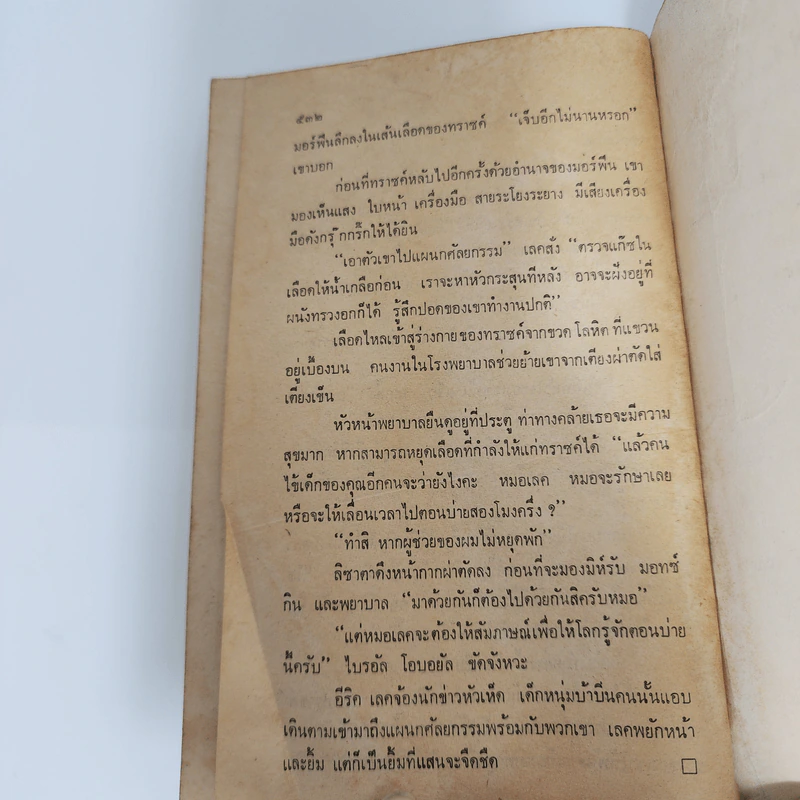 ๕๓๒
มอร์ฟีนลึกลงในเส้นเลือดของทราซค์ “เจ็บอีกไม่นานหรอก”
เขาบอก
ก่อนที่ทราซค์หลับไปอีกครั้งด้วยอำนาจของมอร์ฟีน เขา
มองเห็นแสง ใบหน้า เครื่องมือ สายระโยงระยาง มีเสียงเครื่อง
มือดังกรุ๊กกริ๊กให้ได้ยิน
“เอาตัวเขาไปแผนกศัลยกรรม” เลคสั่ง “ตรวจแก๊ซใน
เลือดให้น้ำเกลือก่อน เราจะหาหัวกระสุนทีหลัง อาจจะฝังอยู่ที่
ผนังทรวงอกก็ได้ รู้สึกปอดของเขาทำงานปกติ”
เลือดไหลเข้าสู่ร่างกายของทราซค์จากขวด โลหิต ที่แขวน
อยู่เบื้องบน คนงานในโรงพยาบาลช่วยย้ายเขาจากเตียงผ่าตัดใส่
เตียงเข็น
หัวหน้าพยาบาลยืนดูอยู่ที่ประตู ท่าทางคล้ายเธอจะมีความ
สุขมาก หากสามารถหยุดเลือดที่กำลังให้แก่ทราซค์ได้ “แล้วคน
ไข้เด็กของคุณอีกคนจะว่ายังไงคะ หมอเลค หมอจะรักษาเลย
หรือจะให้เลื่อนเวลาไปตอนบ่ายสองโมงครึ่ง ?”
“ทำสิ หากผู้ช่วยของผมไม่หยุดพัก”
ลิซาตาดึงหน้ากากผ่าตัดลง ก่อนที่จะมองมิห์รับ มอทซ์
กิน และพยาบาล “มาด้วยกันก็ต้องไปด้วยกันสิครับหมอ”
“แต่หมอเลคจะต้องให้สัมภาษณ์เพื่อให้โลกรู้จักตอนบ่าย
นี้ครับ” ไบรอัล โอบอยัล ขัดจังหวะ
อีริค เลคจ้องนักข่าวหัวเห็ด เด็กหนุ่มบ้าบิ่นคนนั้นแอบ
เดินตามเข้ามาถึงแผนกศัลยกรรมพร้อมกับพวกเขา เลคพยักหน้า
และยิ้ม แต่ก็เป็นยิ้มที่แสนจะจืดชืด □